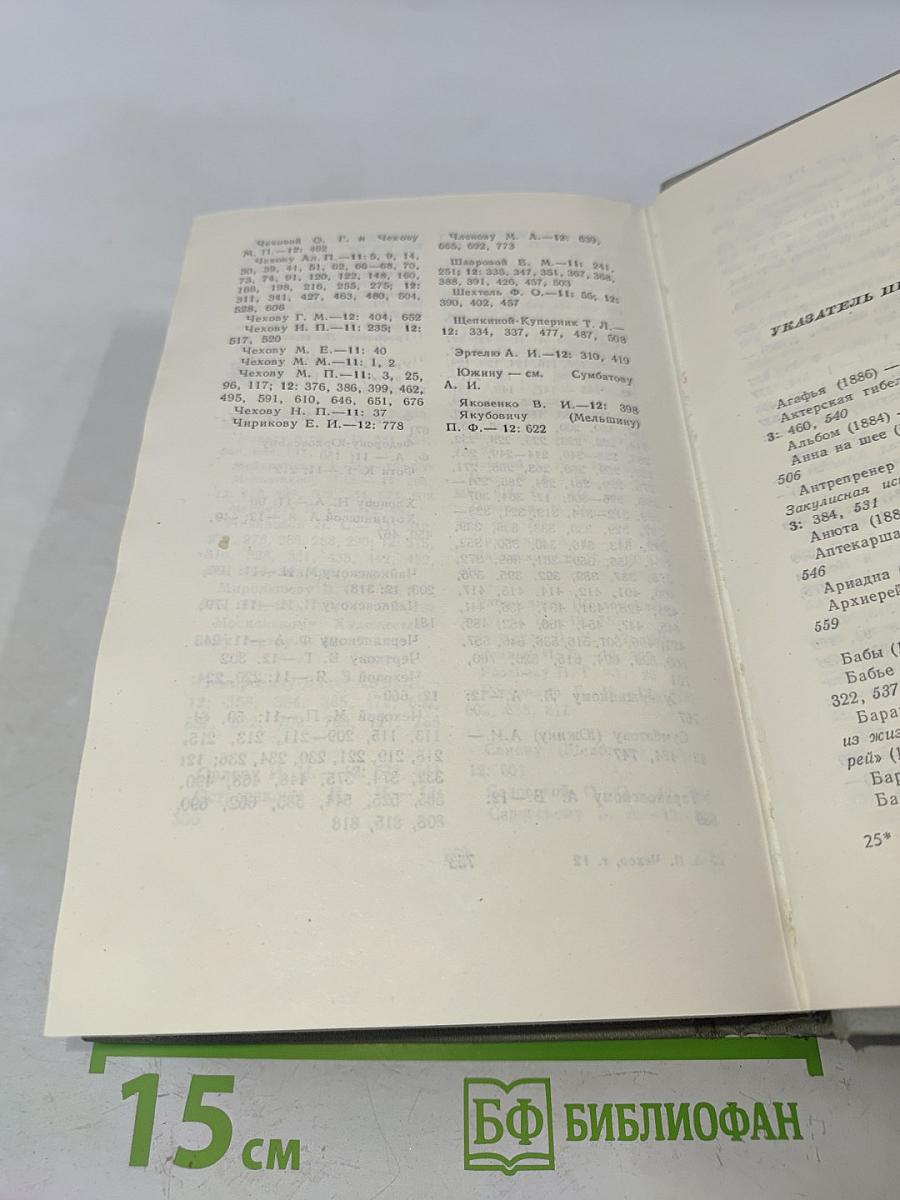 Чеховой О. Г. и Чехову
М. П.—12: 462
Чехову Ал. П.—11: 5, 9, 14,
30, 39, 41, 51, 62, 66—68, 70,
73, 74, 91, 120, 122, 148, 160,
168, 198, 216, 255, 275; 12:
311, 341, 427, 463, 480, 504,
528, 606
Чехову Г. М.—12: 404, 652
Чехову И. П.—11: 235; 12:
517, 520
Чехову М. Е.—11: 40
Чехову М. М.—11: 1, 2
Чехову М. П.—11: 3, 25,
96, 117; 12: 376, 386, 399, 462,
495, 591, 610, 646, 651, 676
Чехову Н. П.—11: 37
Чирикову Е. И.—12: 778
Членову М. А.—12: 639,
665, 692, 773
Шавровой Е. М.—11: 241,
251; 12: 335, 347, 351, 367, 368,
388, 391, 426, 457, 503
Шехтель Ф. О.—11: 55; 12:
390, 402, 457
Щепкиной-Куперник Т. Л.—
12: 334, 337, 477, 487, 508
Эртелю А. И.—12: 310, 419
Южину — см. Сумбатову
А. И.
Яковенко В. И.—12: 398
Якубовичу (Мельшину)
П. Ф.— 12: 622
УКАЗАТЕЛЬ
Агафья (1886) —
Актерская гибел
3: 460, 540
Альбом (1884) —
Анна на шее (
506
Антрепренер
Закулисная ис
3: 384, 531
Анюта (188
Аптекарша
546
Ариадна (
Архиерей
559
Бабы (1
Бабье
322, 537
Бара
из жиз
рей» (1
Бар
Ба
25*
15 см
БФ БИБЛИОФАН